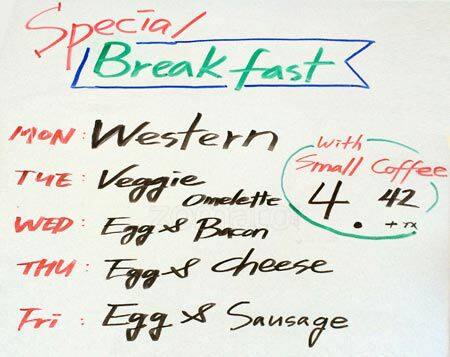 Special
Breakfast
MON: Western
TUE: Veggie Omelette
WED: Egg & Bacon
THU: Egg & cheese
Fri: Egg & Sausage
with
Small Coffee
4.42
+ TX